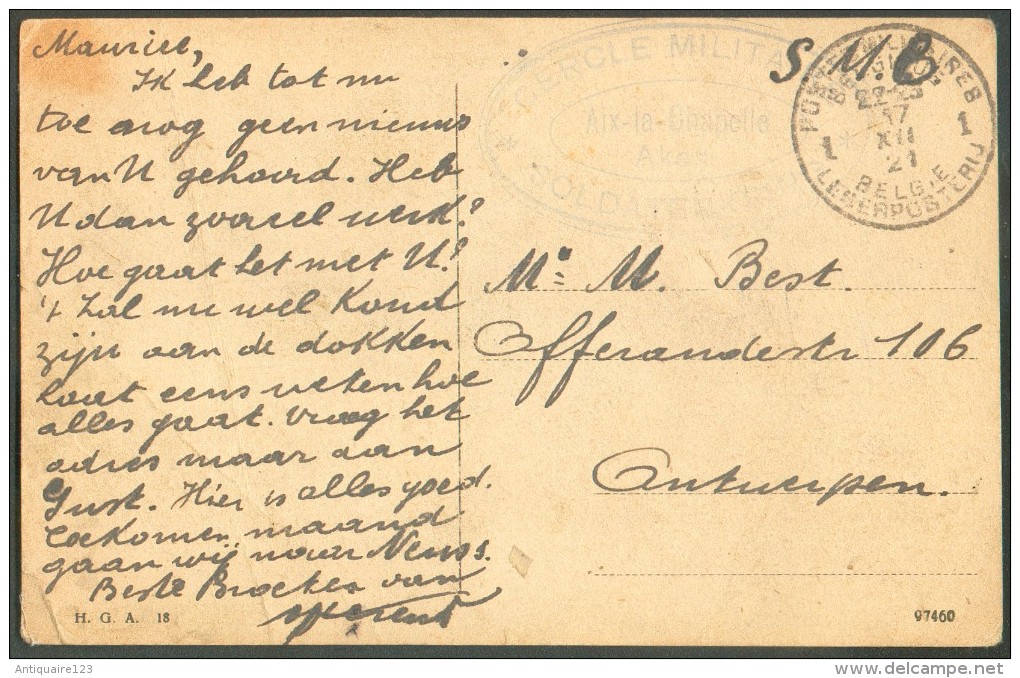 Maurice,
Ik heb tot nu
toe nog geen nieuws
van U gehoord. Heb
U dan zooveel werk?
Hoe gaat het met U?
't Zal nu wel koud
zijn aan de dokken
laat eens weten hoe
alles gaat. Vraag het
adres maar aan
Gust. Hier is alles goed.
Toekomen maand
gaan wij naar Neuss.
Beste Groeten van
H. G. A. 18
CERCLE MILITA
Aix-la-Chapelle
Aken
SOLDATEN
S.M.B
22-23
17
XII
21
1 1
BELGIE
LEGERPOSTERIJ
Mr. M. Best.
Offerandestr 106
Antwerpen.
97460
Antiquaire123
delcampe.net